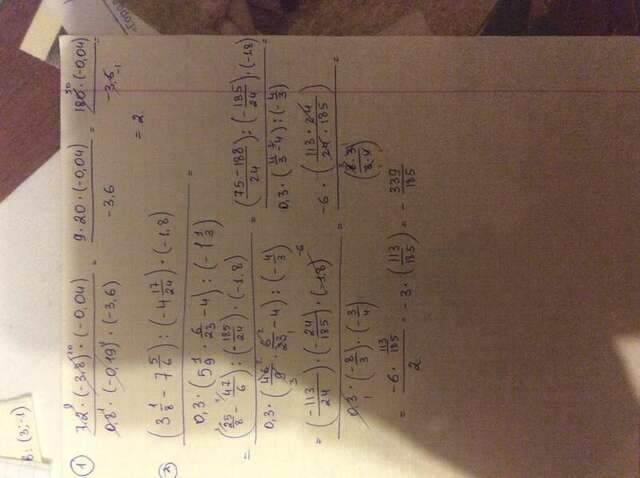 в: (3; -1)
① (7.2 · (-3,8) · (-0,04)) / (0,8 · (-0,19) · (-3,6)) = (9 · 20 · (-0,04)) / (-3,6) = (180 · (-0,04)) / (-3,6) =
= 2
② ((3 1/8 - 7 5/6) : (-4 17/24) · (-1,8)) / (0,3 · (5 1/9 · 6/23 - 4) : (-1 1/3)) =
= ((25/8 - 47/6) : (-185/24) · (-1,8)) / (0,3 · (46/9 · 6/23 - 4) : (-4/3)) = ((75-188)/24) : (-185/24) · (-1,8) / (0,3 · (4/3 - 4) : (-4/3)) =
= ((-113/24) · (-24/185) · (-1,8)) / (0,3 · (-8/3) · (-3/4)) = (-6 · (113 · 24 / 24 · 185)) / (8 · 3 / 3 · 4) =
= (-6 · 113/185) / 2 = -3 · (113/185) = - 339/185